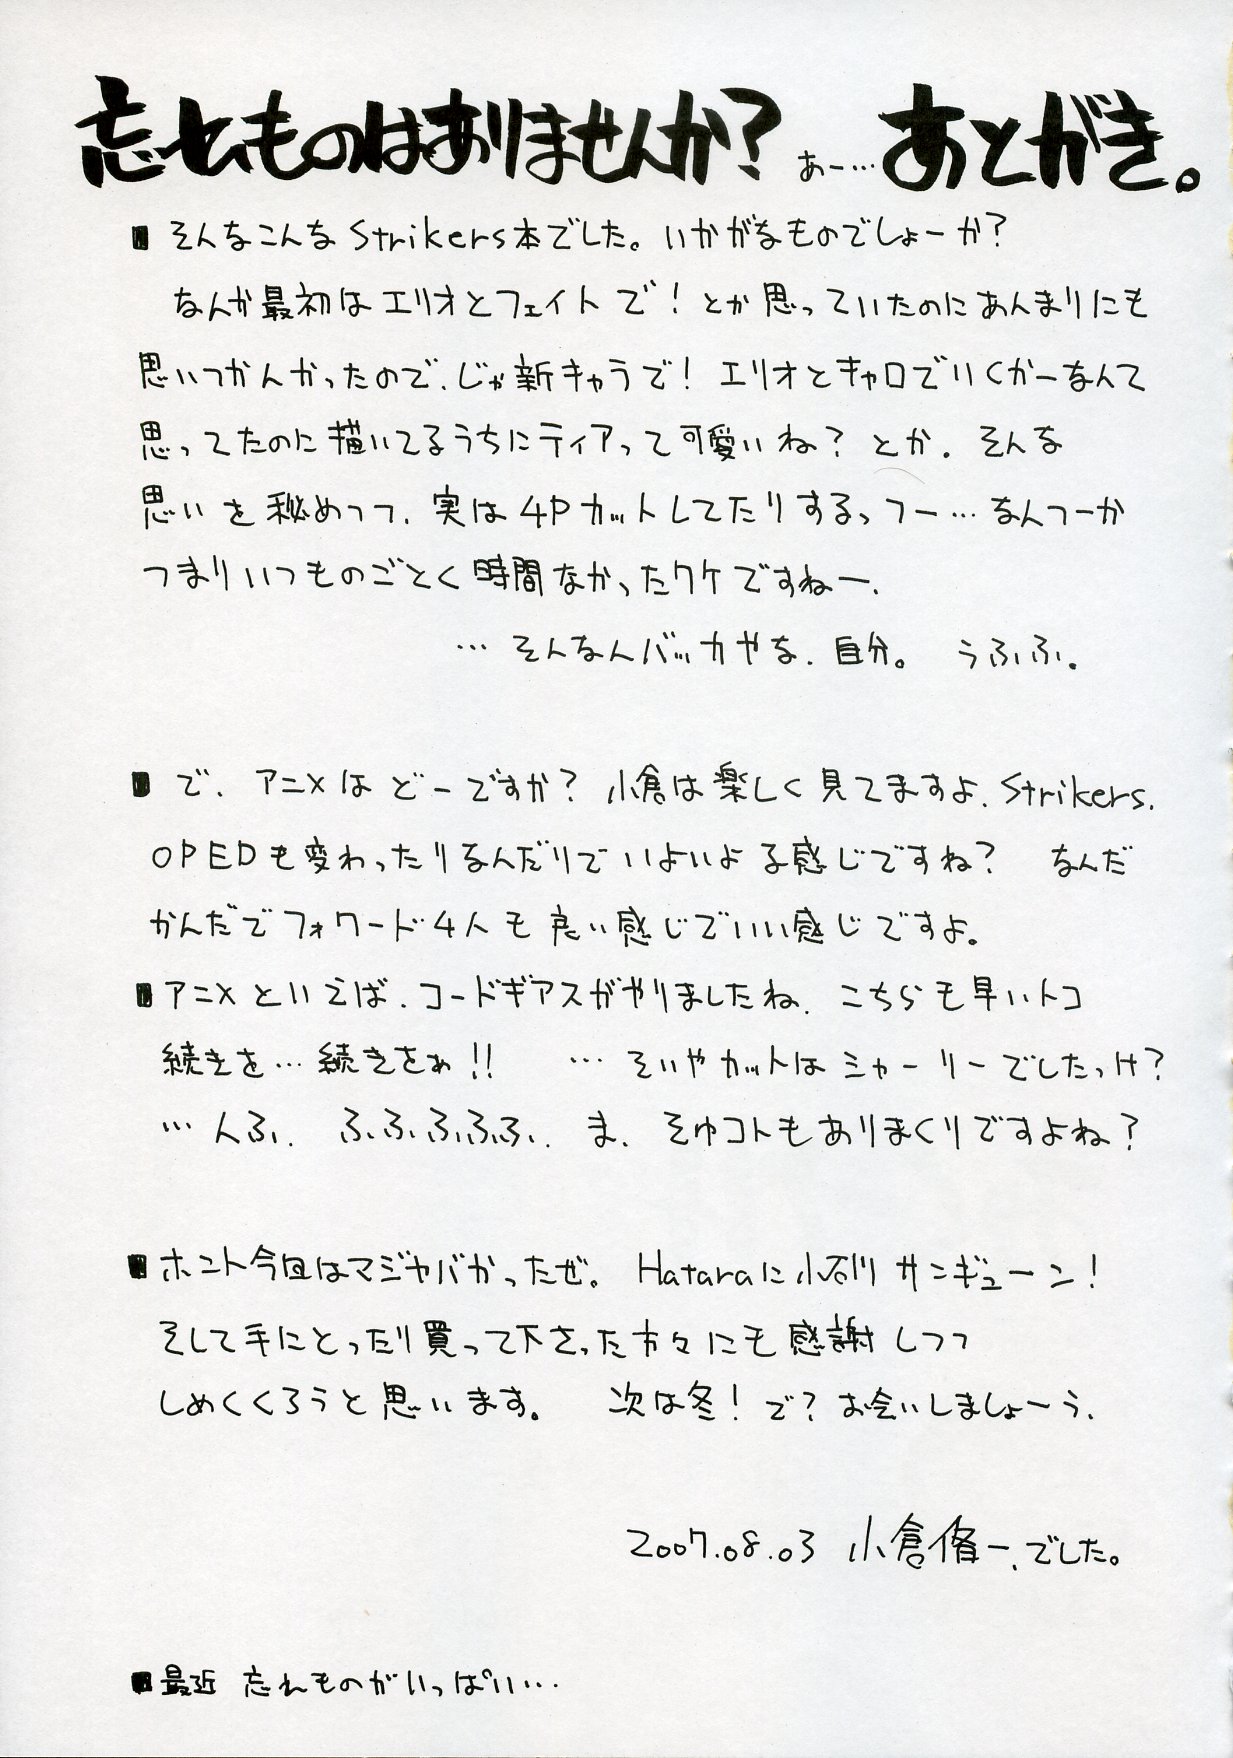 忘れものはありませんか? あー…あとがき。
■ そんなこんなStrikers本でした。いかがなものでしょーか?
なんか最初はエリオとフェイトで!とか思っていたのにあんまりにも
思いつかんかったので、じゃ新キャラで!エリオとキャロでいくかーなんて
思ってたのに描いてるうちにティアって可愛いね?とか、そんな
思いを秘めつつ、実は4Pカットしてたりするっつー…なんつーか
つまりいつものごとく時間なかったワケですねー、
…そんなんバッカやな、自分。 うふふ。
■ で、アニメはどーですか?小倉は楽しく見てますよ、Strikers.
OPEDも変わったりなんだりでいよいよな感じですね? なんだ
かんだでフォワード4人も良い感じでいい感じですよ。
■アニメといえば、コードギアスがやりましたね、こちらも早いトコ
続きを…続きをぉ!! …そいやカットはシャーリーでしたっけ?
…んふ、ふふふふふ、ま、そゆコトもありまくりですよね?
■ホント今回はマジヤバかったぜ。Hataraに小石川サンギューン!
そして手にとったり買って下さった方々にも感謝しつつ
しめくくろうと思います。 次は冬!で?お会いしましょーう、
2007.08.03 小倉脩一、でした。
■最近 忘れものがいっぱい…